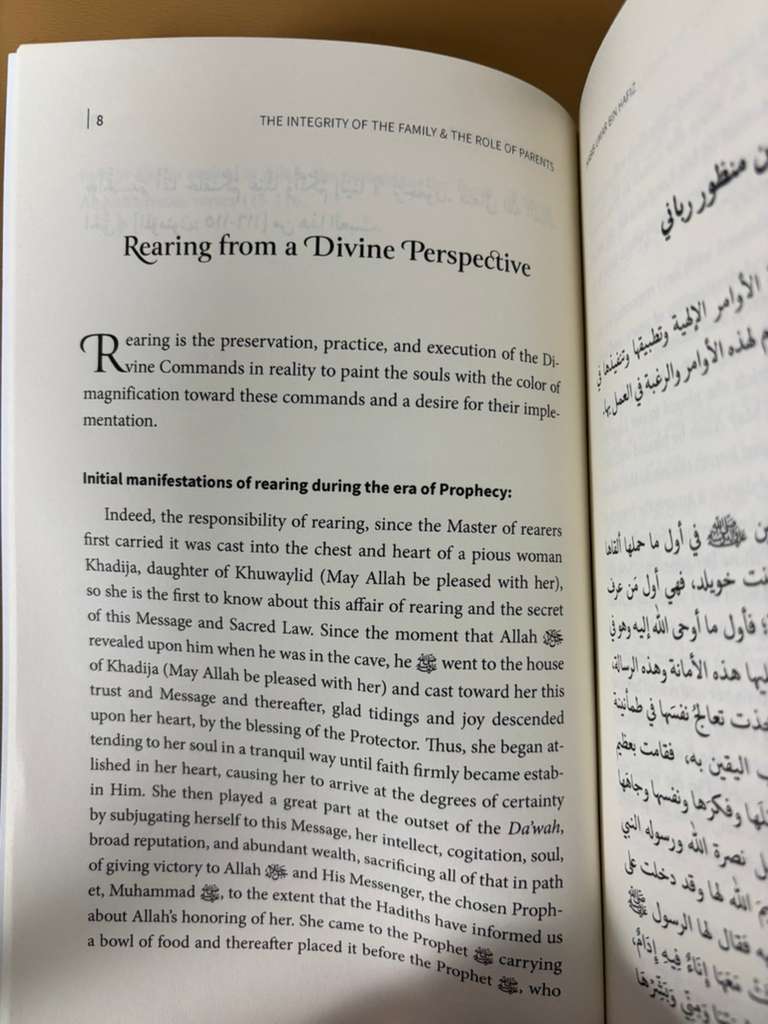 8
THE INTEGRITY OF THE FAMILY & THE ROLE OF PARENTS
Rearing from a Divine Perspective
Rearing is the preservation, practice, and execution of the Di-
vine Commands in reality to paint the souls with the color of
magnification toward these commands and a desire for their imple-
mentation.
Initial manifestations of rearing during the era of Prophecy:
Indeed, the responsibility of rearing, since the Master of rearers
first carried it was cast into the chest and heart of a pious woman
Khadija, daughter of Khuwaylid (May Allah be pleased with her),
so she is the first to know about this affair of rearing and the secret
of this Message and Sacred Law. Since the moment that Allah ﷻ
revealed upon him when he was in the cave, he ﷺ went to the house
of Khadija (May Allah be pleased with her) and cast toward her this
trust and Message and thereafter, glad tidings and joy descended
upon her heart, by the blessing of the Protector. Thus, she began at-
tending to her soul in a tranquil way until faith firmly became estab-
lished in her heart, causing her to arrive at the degrees of certainty
in Him. She then played a great part at the outset of the Da'wah,
by subjugating herself to this Message, her intellect, cogitation, soul,
broad reputation, and abundant wealth, sacrificing all of that in path
of giving victory to Allah ﷻ and His Messenger, the chosen Proph-
et, Muhammad ﷺ, to the extent that the Hadiths have informed us
about Allah's honoring of her. She came to the Prophet ﷺ carrying
a bowl of food and thereafter placed it before the Prophet ﷺ, who
BIN HAFIZ
منظور رباني
الأوامر الإلهية وتطبيقها وتنفيذها في
لهذه الأوامر والرغبة في العمل بها.
ﷺ في أول ما حملها ألقاها
خويلد، فهي أول مَن عرف
فأول ما أوحى الله إليه وهو في
هذه الأمانة وهذه الرسالة،
تعالجُ نفسَها في طمأنينة
اليقين به، فقامت بعظيم
وفكرَها ونفسها وجاهَها
نصرة الله ورسوله النبي
الله لها وقد دخلت على
فقال لها الرسول ﷺ
مَعَهَا إِنَاءٌ فِيهِ إِدَامٌ،
وَمِنِّي وَبَشِّرْهَا